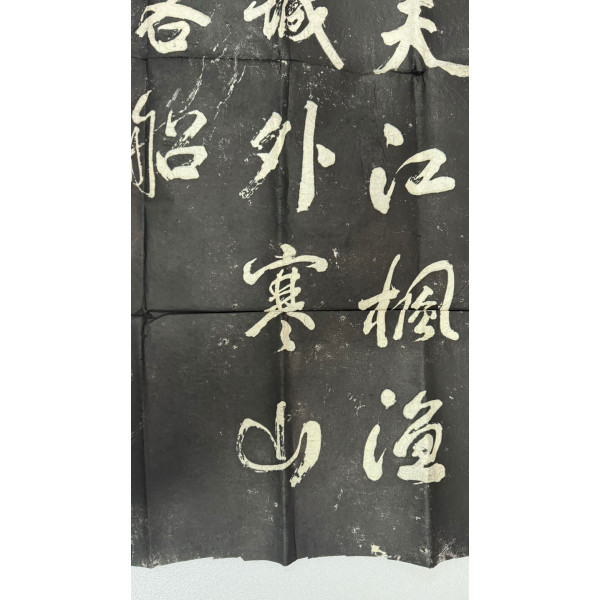 天江楓漁
城外寒山
客船